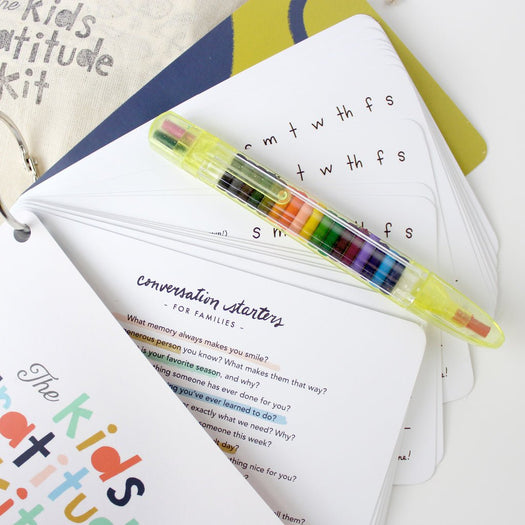 The
Kids
Gratitude
Kit
s m t w th f s
s m t w th f s
s m t w th f s
conversation starters
- FOR FAMILIES -
What memory always makes you smile?
generous person you know? What makes them that way?
is your favorite season, and why?
thing someone has ever done for you?
ing you've ever learned to do?
exactly what we need? Why?
someone this week?
day?
thing nice for you?
all them?
The
Kids
Gratitude
Kit